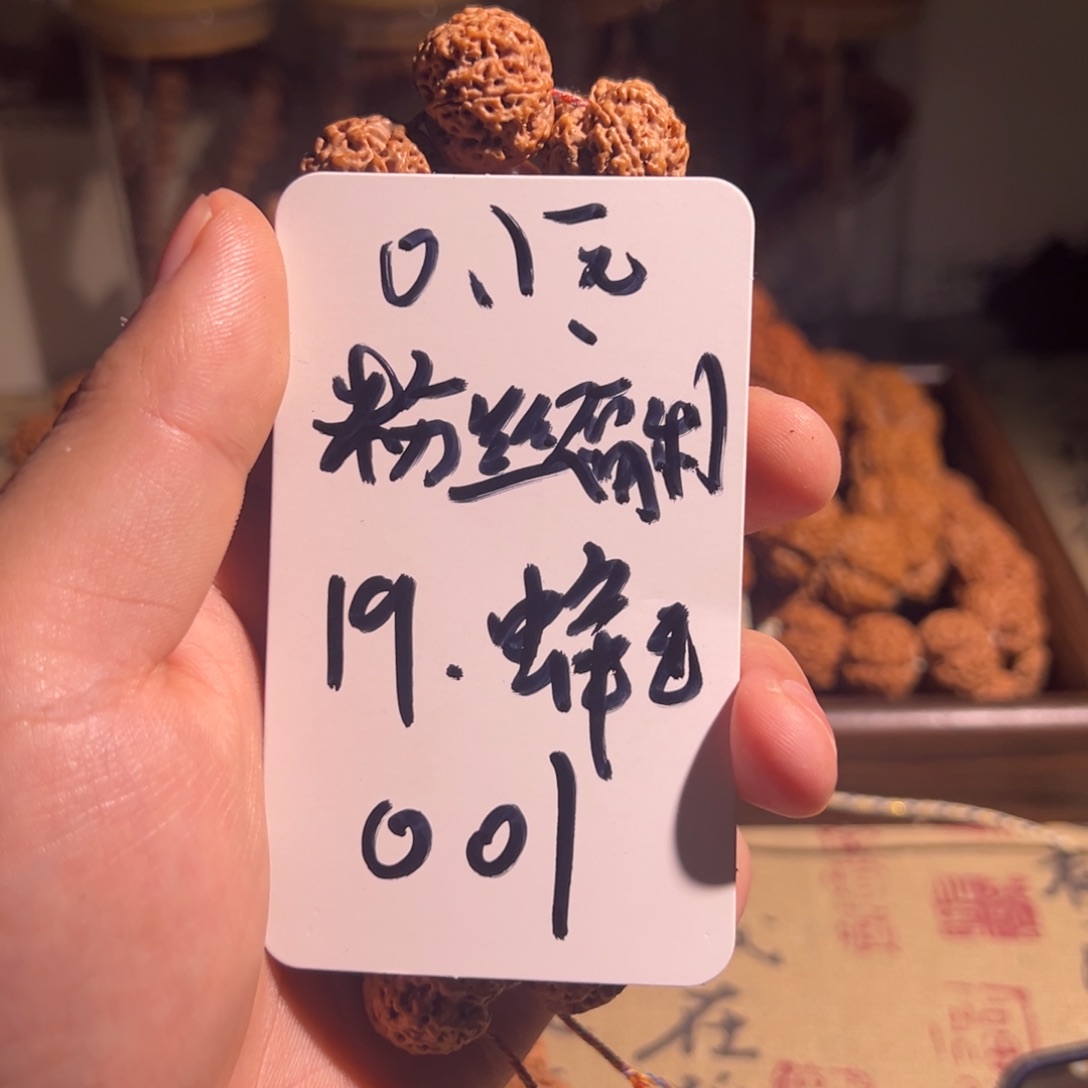 0.1元
粉丝福利
19.蜂毛
001
在